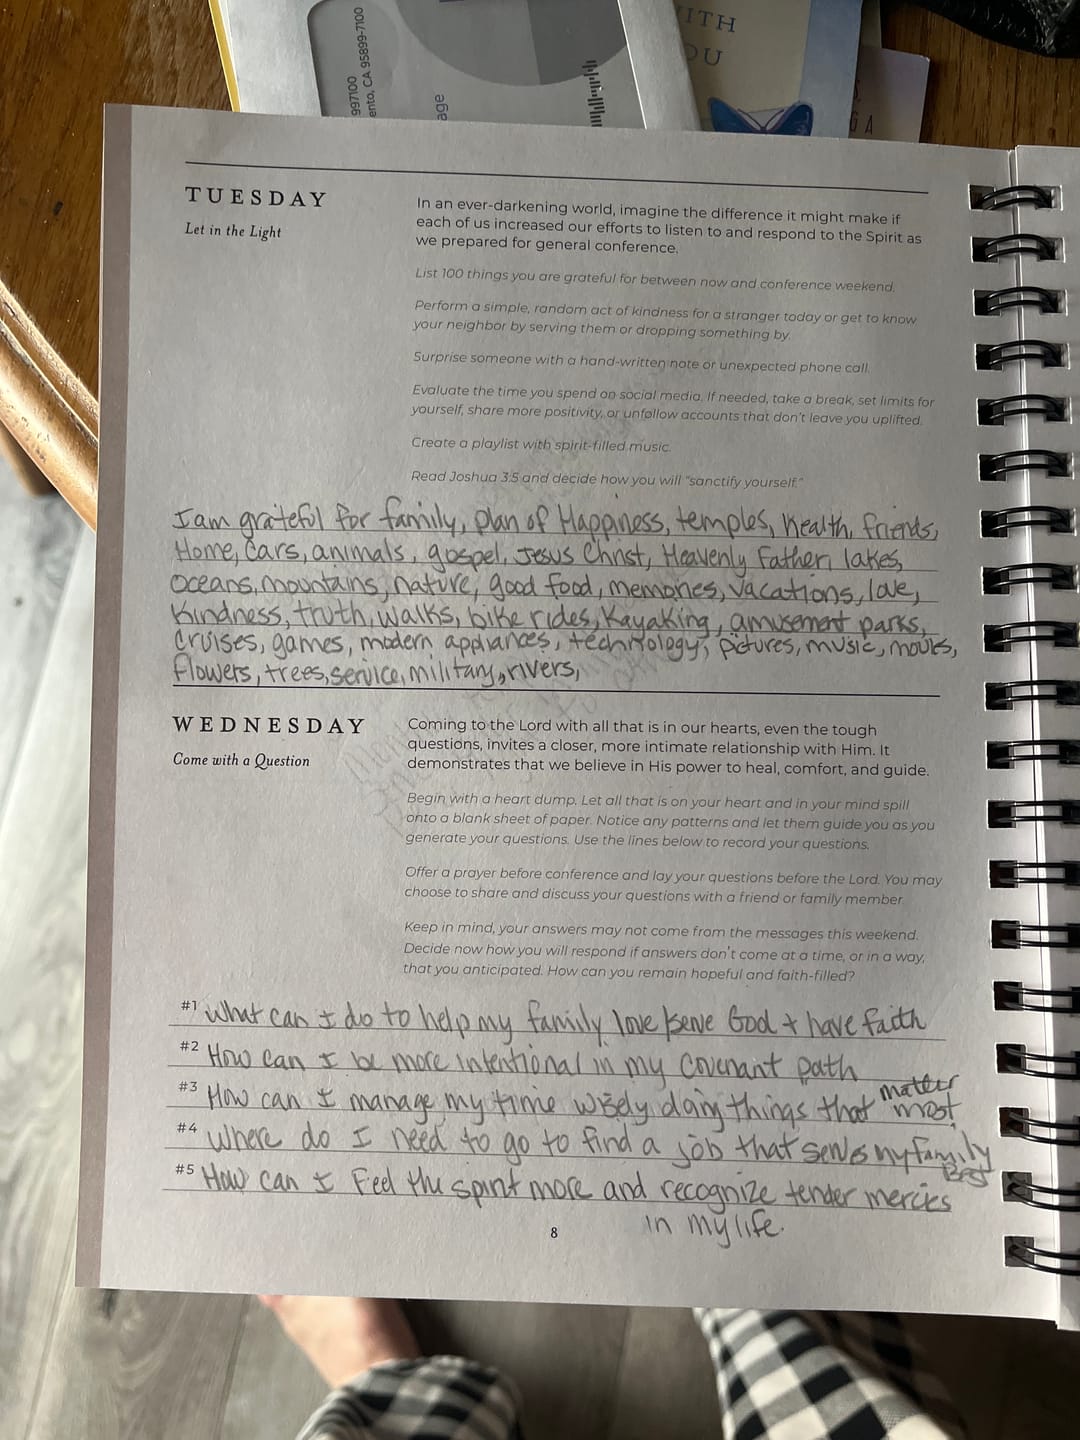 997100
ento, CA 95899-7100
age
ITH
OU
GA
TUESDAY
Let in the Light
In an ever-darkening world, imagine the difference it might make if
each of us increased our efforts to listen to and respond to the Spirit as
we prepared for general conference.
List 100 things you are grateful for between now and conference weekend.
Perform a simple, random act of kindness for a stranger today or get to know
your neighbor by serving them or dropping something by.
Surprise someone with a hand-written note or unexpected phone call.
Evaluate the time you spend on social media. If needed, take a break, set limits for
yourself, share more positivity, or unfollow accounts that don't leave you uplifted.
Create a playlist with spirit-filled music.
Read Joshua 3:5 and decide how you will "sanctify yourself."
I am grateful for family, plan of Happiness, temples, health, friends,
Home, Cars, animals, gospel, Jesus Christ, Heavenly Father, lakes,
Oceans, mountains, nature, good food, memories, vacations, love,
Kindness, truth, walks, bike rides, Kayaking, amusement parks,
cruises, games, modern appliances, technology, pictures, music, movies,
flowers, trees, service, military, rivers,
WEDNESDAY
Come with a Question
Coming to the Lord with all that is in our hearts, even the tough
questions, invites a closer, more intimate relationship with Him. It
demonstrates that we believe in His power to heal, comfort, and guide.
Begin with a heart dump. Let all that is on your heart and in your mind spill
onto a blank sheet of paper. Notice any patterns and let them guide you as you
generate your questions. Use the lines below to record your questions.
Offer a prayer before conference and lay your questions before the Lord. You may
choose to share and discuss your questions with a friend or family member.
Keep in mind, your answers may not come from the messages this weekend.
Decide now how you will respond if answers don't come at a time, or in a way,
that you anticipated. How can you remain hopeful and faith-filled?
#1 What can I do to help my family love/serve God + have faith
#2 How can I be more intentional in my covenant path
#3 How can I manage my time wisely doing things that matter most
#4 Where do I need to go to find a job that serves my family Best
#5 How can I Feel the spirit more and recognize tender mercies
in my life.
8